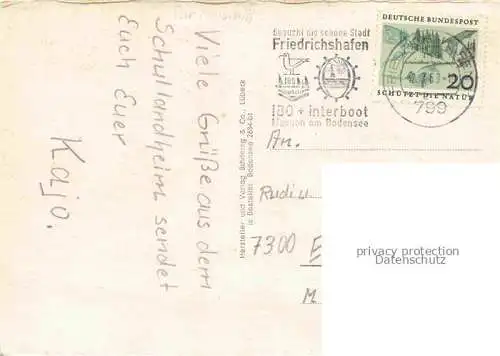 Viele Grüße aus dem
Schullandheim sendet
Euch Euer
Kajo.
Hersteller und Verlag Schöning & Co., Lübeck
Besucht die schöne Stadt
Friedrichshafen
IBO + interboot
Messen am Bodensee
DEUTSCHE BUNDESPOST
20
SCHÜTZT DIE NATUR
799
An.
7300 E
M
privacy protection
Datenschutz